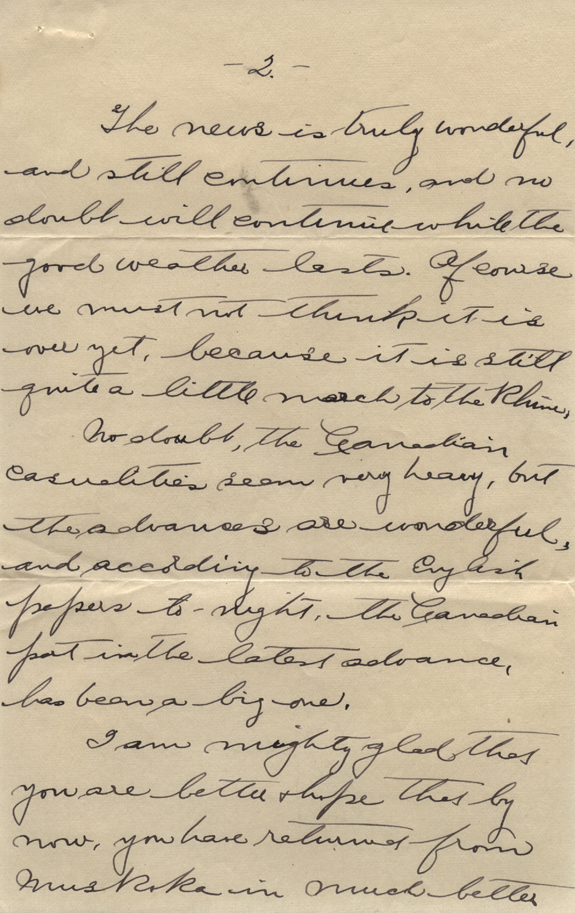 - 2. -
The news is truly wonderful,
and still continues, and no
doubt will continue while the
good weather lasts. Of course
we must not think it is
over yet, because it is still
quite a little march to the Rhine,
No doubt, the Canadian
casualities seem very heavy, but
the advances are wonderful,
and according to the English
papers to-night, the Canadian
part in the latest advance,
has been a big one.
I am mighty glad that
you are better & hope that by
now, you have returned from
Muskoka in much better